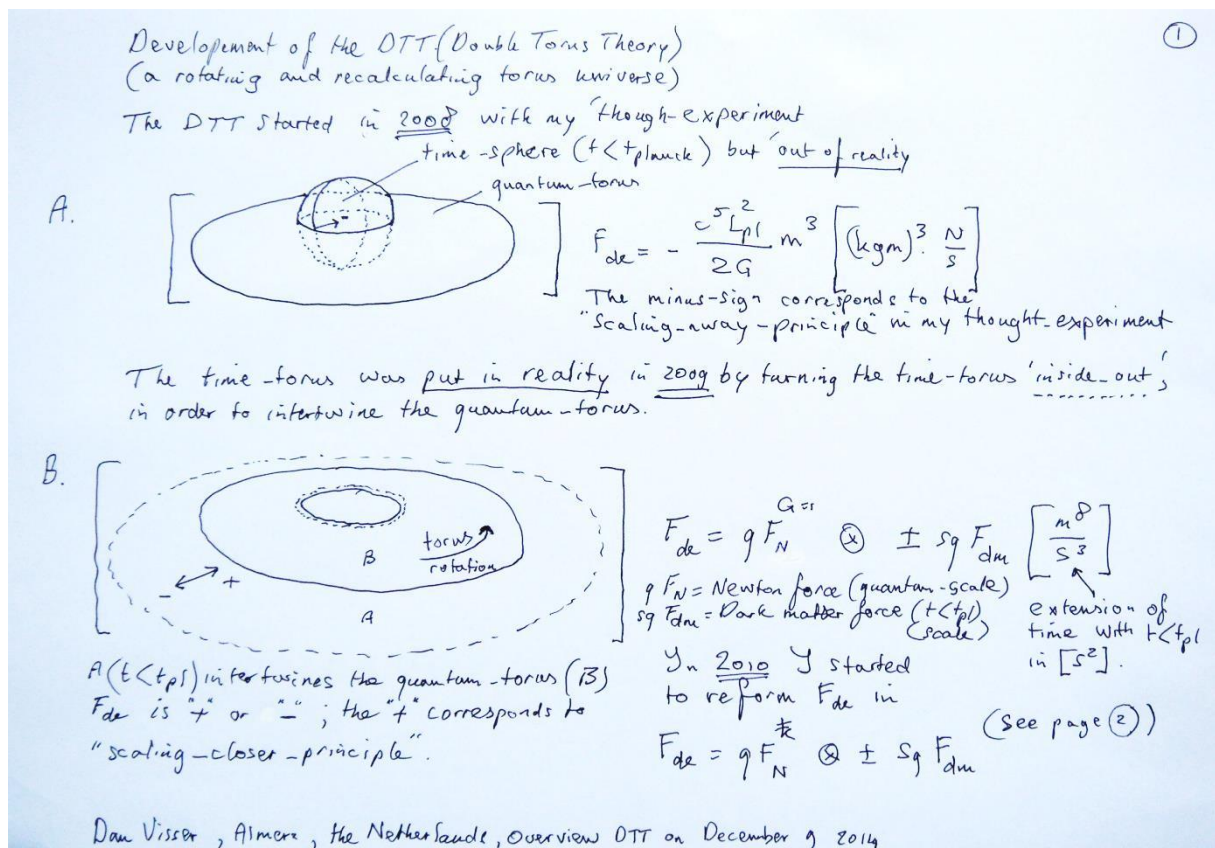 Developement of the DTT (Double Torus Theory)
①
(a rotating and recalculating torus universe)
The DTT started in 2008 with my 'though-experiment
time-sphere (t<tplanck) but 'out of reality
quantum-torus
A.
F_de = - \frac{c^5 L_{pl}^2}{2G} m^3 [(kgm)^3. \frac{N}{s}]
The minus-sign corresponds to the
"scaling-away-principle" in my thought-experiment
The time-torus was put in reality in 2009 by turning the time-torus 'inside-out',
in order to intertwine the quantum-torus.
B.
torus
rotation
B
- +
A
F_de = q F_N^{G=1} ⊗ ± sq F_dm [\frac{m^8}{s^3}]
q F_N = Newton force (quantum-scale)
sq F_dm = Dark matter force (t<tpl)
(scale)
extension of
time with t<tpl
in [s^2].
A (t<tpl) intertwines the quantum-torus (B)
F_de is "+" or "-"; the "+" corresponds to
"scaling-closer-principle".
In 2010 I started
to reform F_de in
(See page ②)
F_de = q F_N ⊗ ± sq F_dm
Dan Visser, Almere, the Netherlands, overview DTT on December 9 2014